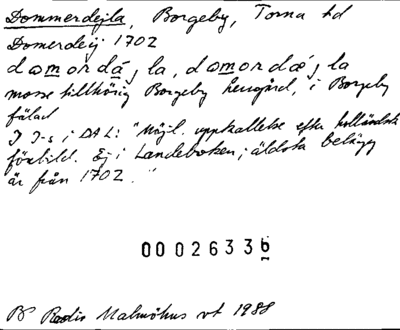 Dommerdejla, Borgeby, Torna hd
Domerdeij 1702
domordájla, domordǽjla
mosse tillhörig Borgeby herrgård, i Borgeby
fälad
I J-s i DAL: "Möjl. uppkallelse efter holländsk
förebild. Ej i Landeboken; äldsta belägg
är från 1702."
00026336
Radio Malmöhus vt 1988